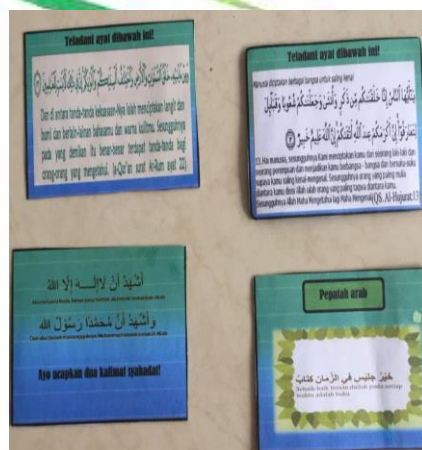 Teladani ayat dibawah ini!
وَمِنْ آيَاتِهِ خَلْقُ السَّمَاوَاتِ وَالْأَرْضِ وَاخْتِلَافُ أَلْسِنَتِكُمْ وَأَلْوَانِكُمْ إِنَّ فِي ذَلِكَ لَآيَاتٍ لِلْعَالِمِينَ
Dan di antara tanda-tanda kekuasaan-Nya ialah menciptakan langit dan
bumi dan berlain-lainan bahasamu dan warna kulitmu. Sesungguhnya
pada yang demikian itu benar-benar terdapat tanda-tanda bagi
orang-orang yang mengetahui. (a-Qor'an surat Ar-Rum ayat 22)
Teladani ayat dibawah ini!
Manusia diciptakan berbagai bangsa untuk saling kenal
يَا أَيُّهَا النَّاسُ إِنَّا خَلَقْنَاكُمْ مِنْ ذَكَرٍ وَأُنْثَى وَجَعَلْنَاكُمْ شُعُوبًا وَقَبَائِلَ
لِتَعَارَفُوا إِنَّ أَكْرَمَكُمْ عِنْدَ اللَّهِ أَتْقَاكُمْ إِنَّ اللَّهَ عَلِيمٌ خَبِيرٌ
13. Hai manusia, sesungguhnya Kami menciptakan kamu dari seorang laki-laki dan
seorang perempuan dan menjadikan kamu berbangsa - bangsa dan bersuku-suku
supaya kamu saling kenal-mengenal. Sesungguhnya orang yang paling mulia
diantara kamu disisi Allah ialah orang yang paling taqwa diantara kamu.
Sesungguhnya Allah Maha Mengetahui lagi Maha Mengenal(QS. Al-Hujurat:13
أَشْهَدُ أَنْ لَاإِلَـــهَ إِلَّا اللهُ
وَأَشْهَدُ أَنَّ مُحَمَّدًا رَسُوْلُ الله
Ayo ucapkan dua kalimat syahadat!
Pepatah arab
خَيْرُ جَلِيْسٍ فِي الزَّمَانِ كِتَابٌ
Sebaik-baik teman duduk pada setiap
waktu adalah buku